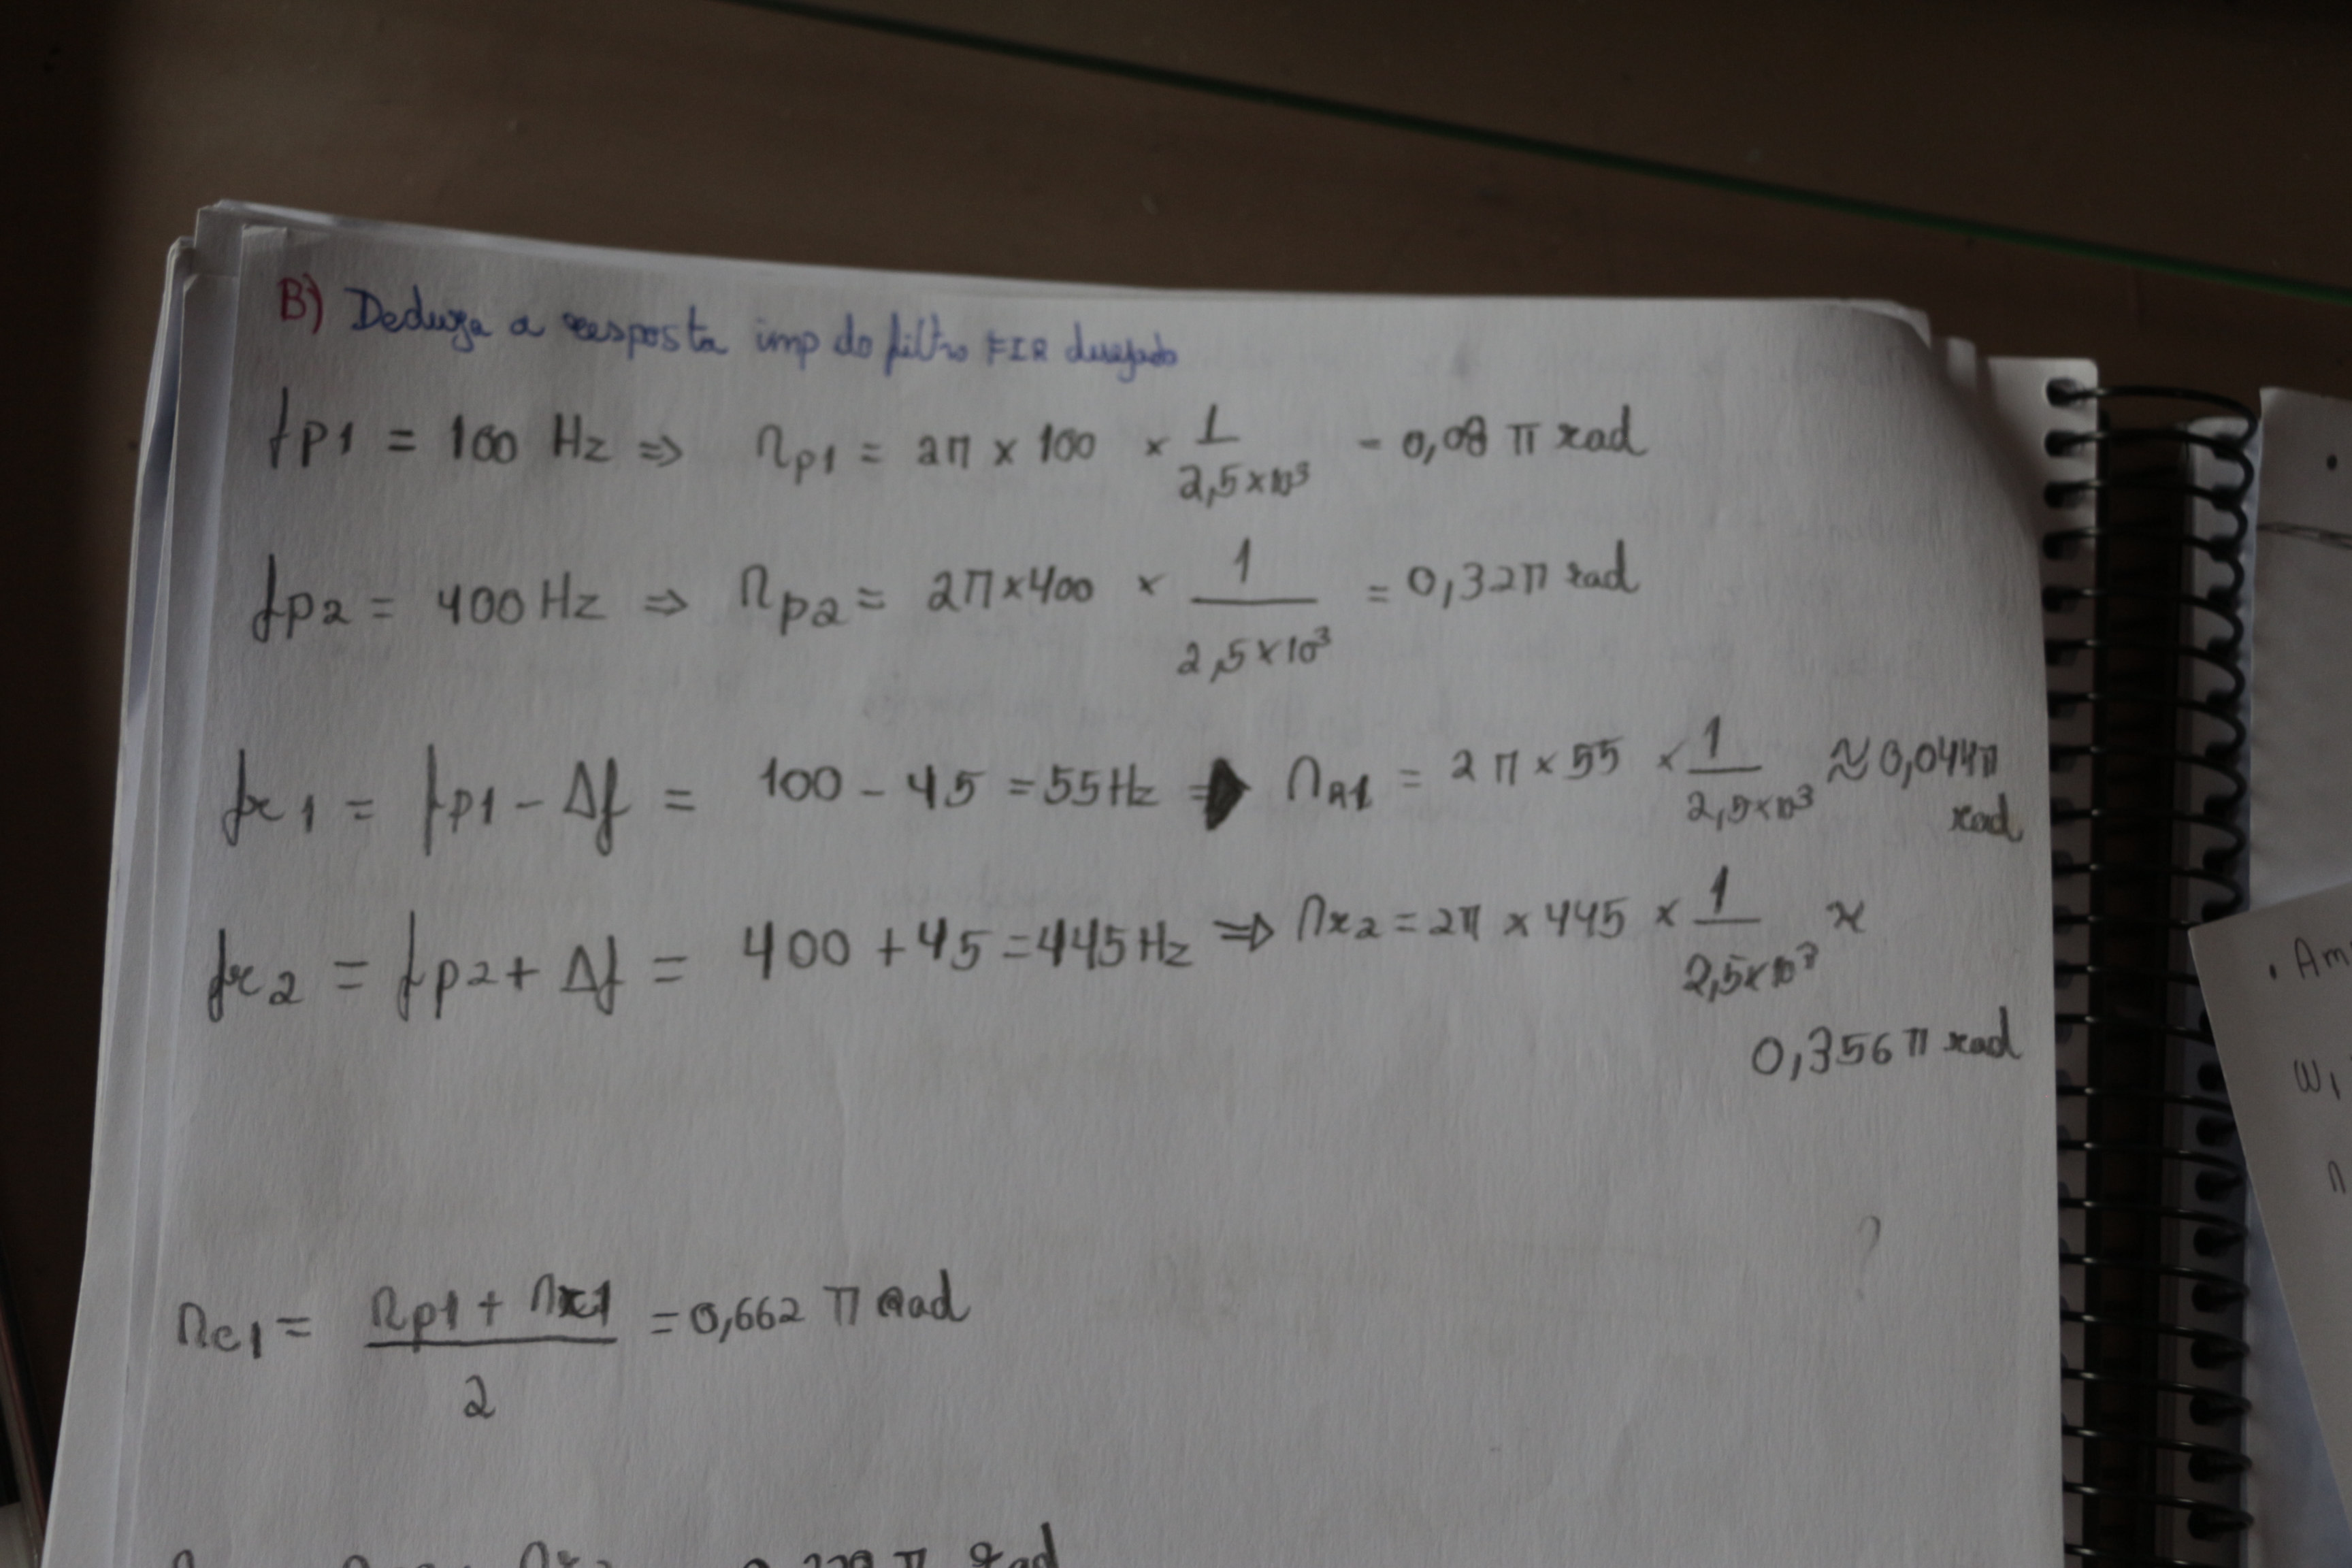 B) Deduza a resposta imp do filtro FIR desejado
fp1 = 100 Hz ⇒ Ωp1 = 2π × 100 × 1/2,5×10³ = 0,08 π rad
fp2 = 400 Hz ⇒ Ωp2 = 2π×400 × 1/2,5×10³ = 0,32π rad
fr1 = fp1 - Δf = 100 - 45 = 55 Hz ⇒ ΩR1 = 2π × 55 × 1/2,5×10³ ≈ 0,044π
rad
fr2 = fp2 + Δf = 400 + 45 = 445 Hz ⇒ Ωr2 = 2π × 445 × 1/2,5×10³ ≈
0,356 π rad
?
Ωc1 = Ωp1 + Ωr1 / 2 = 0,662 π rad
π rad
• Am
ω1